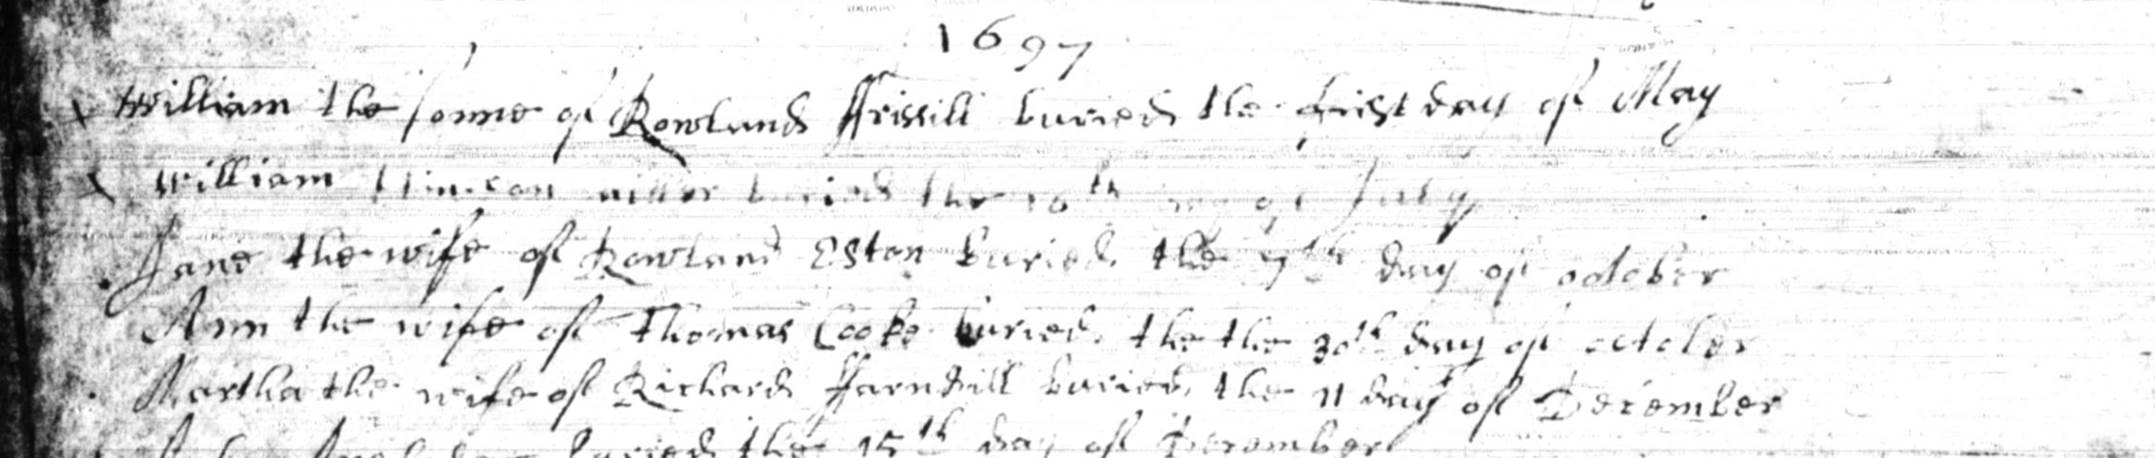 1697
William the sonne of Rowland ffrissill buried the first day of May
William buried the 10th day of July
Jane the wife of Rowland Eston buried the 7th day of october
Ann the wife of Thomas Cooke buried the the 30th day of october
Martha the wife of Richard ffarndill buried the 11 day of December
buried the 15th day of December